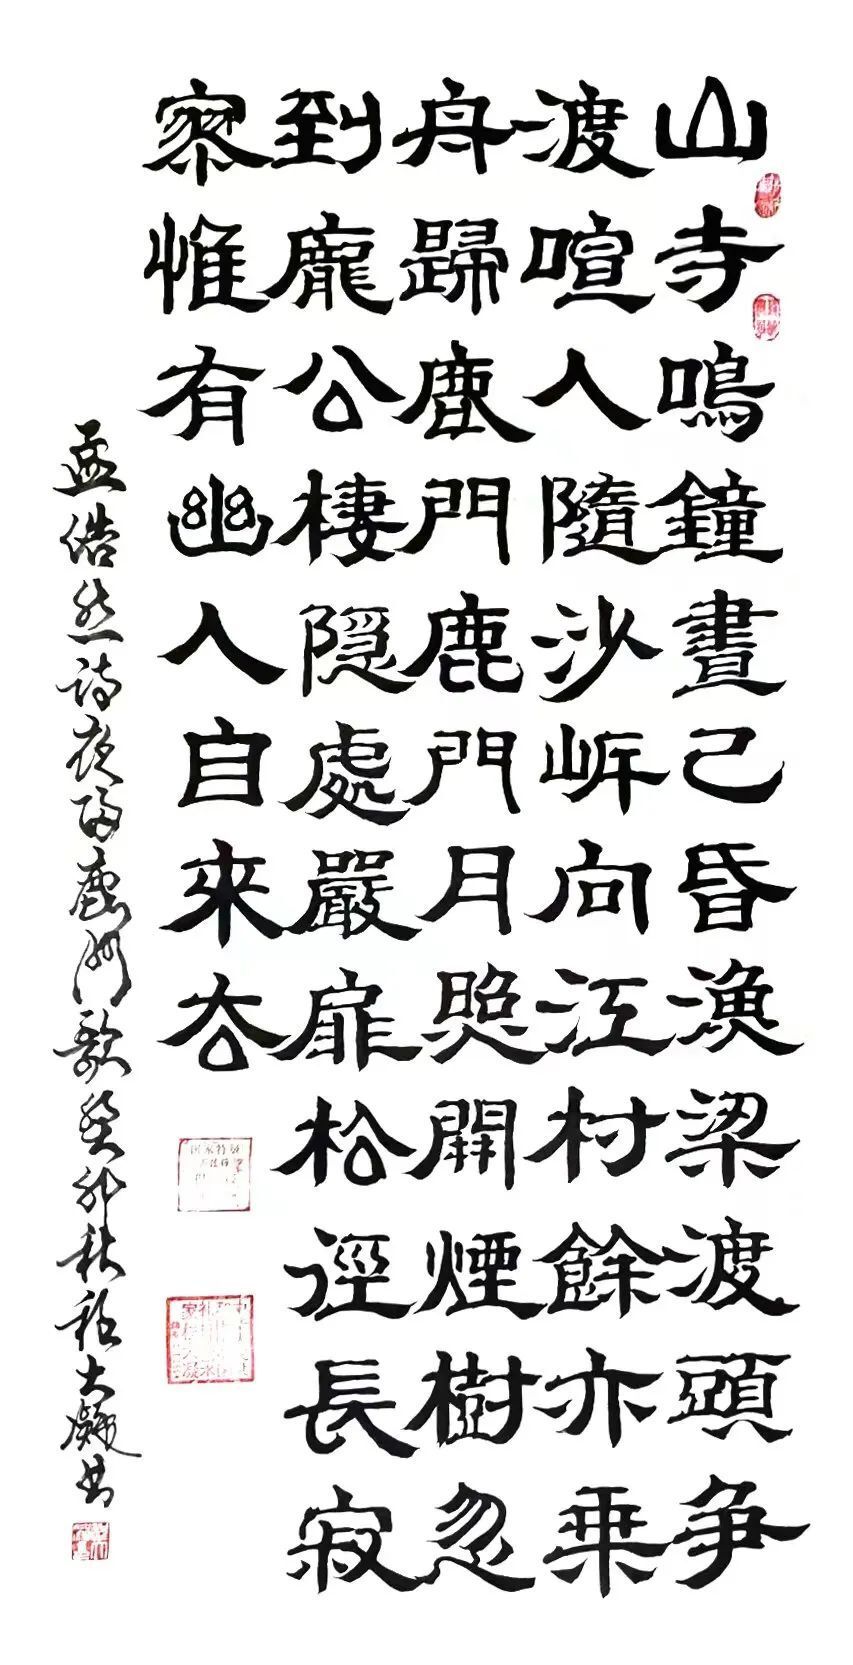 山寺鳴鐘晝已昏漁梁渡頭爭
渡喧人隨沙岸向江村餘亦乘
舟歸鹿門鹿門月照開煙樹忽
到龐公棲隱處嚴扉松徑長寂
寥惟有幽人自來去
孟浩然詩夜歸鹿門歌癸卯秋程大凝書